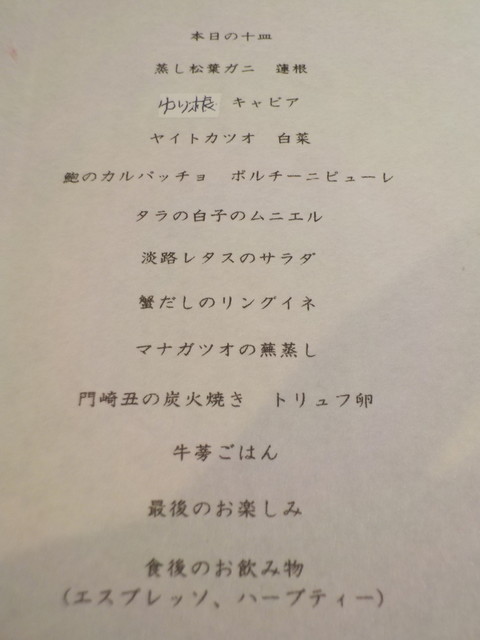 本日の十皿
蒸し松葉ガニ　蓮根
ゆり根 キャビア
ヤイトカツオ　白菜
鮑のカルパッチョ　ポルチーニピューレ
タラの白子のムニエル
淡路レタスのサラダ
蟹だしのリングイネ
マナガツオの蕪蒸し
門崎丑の炭火焼き　トリュフ卵
牛蒡ごはん
最後のお楽しみ
食後のお飲み物
(エスプレッソ、ハーブティー)